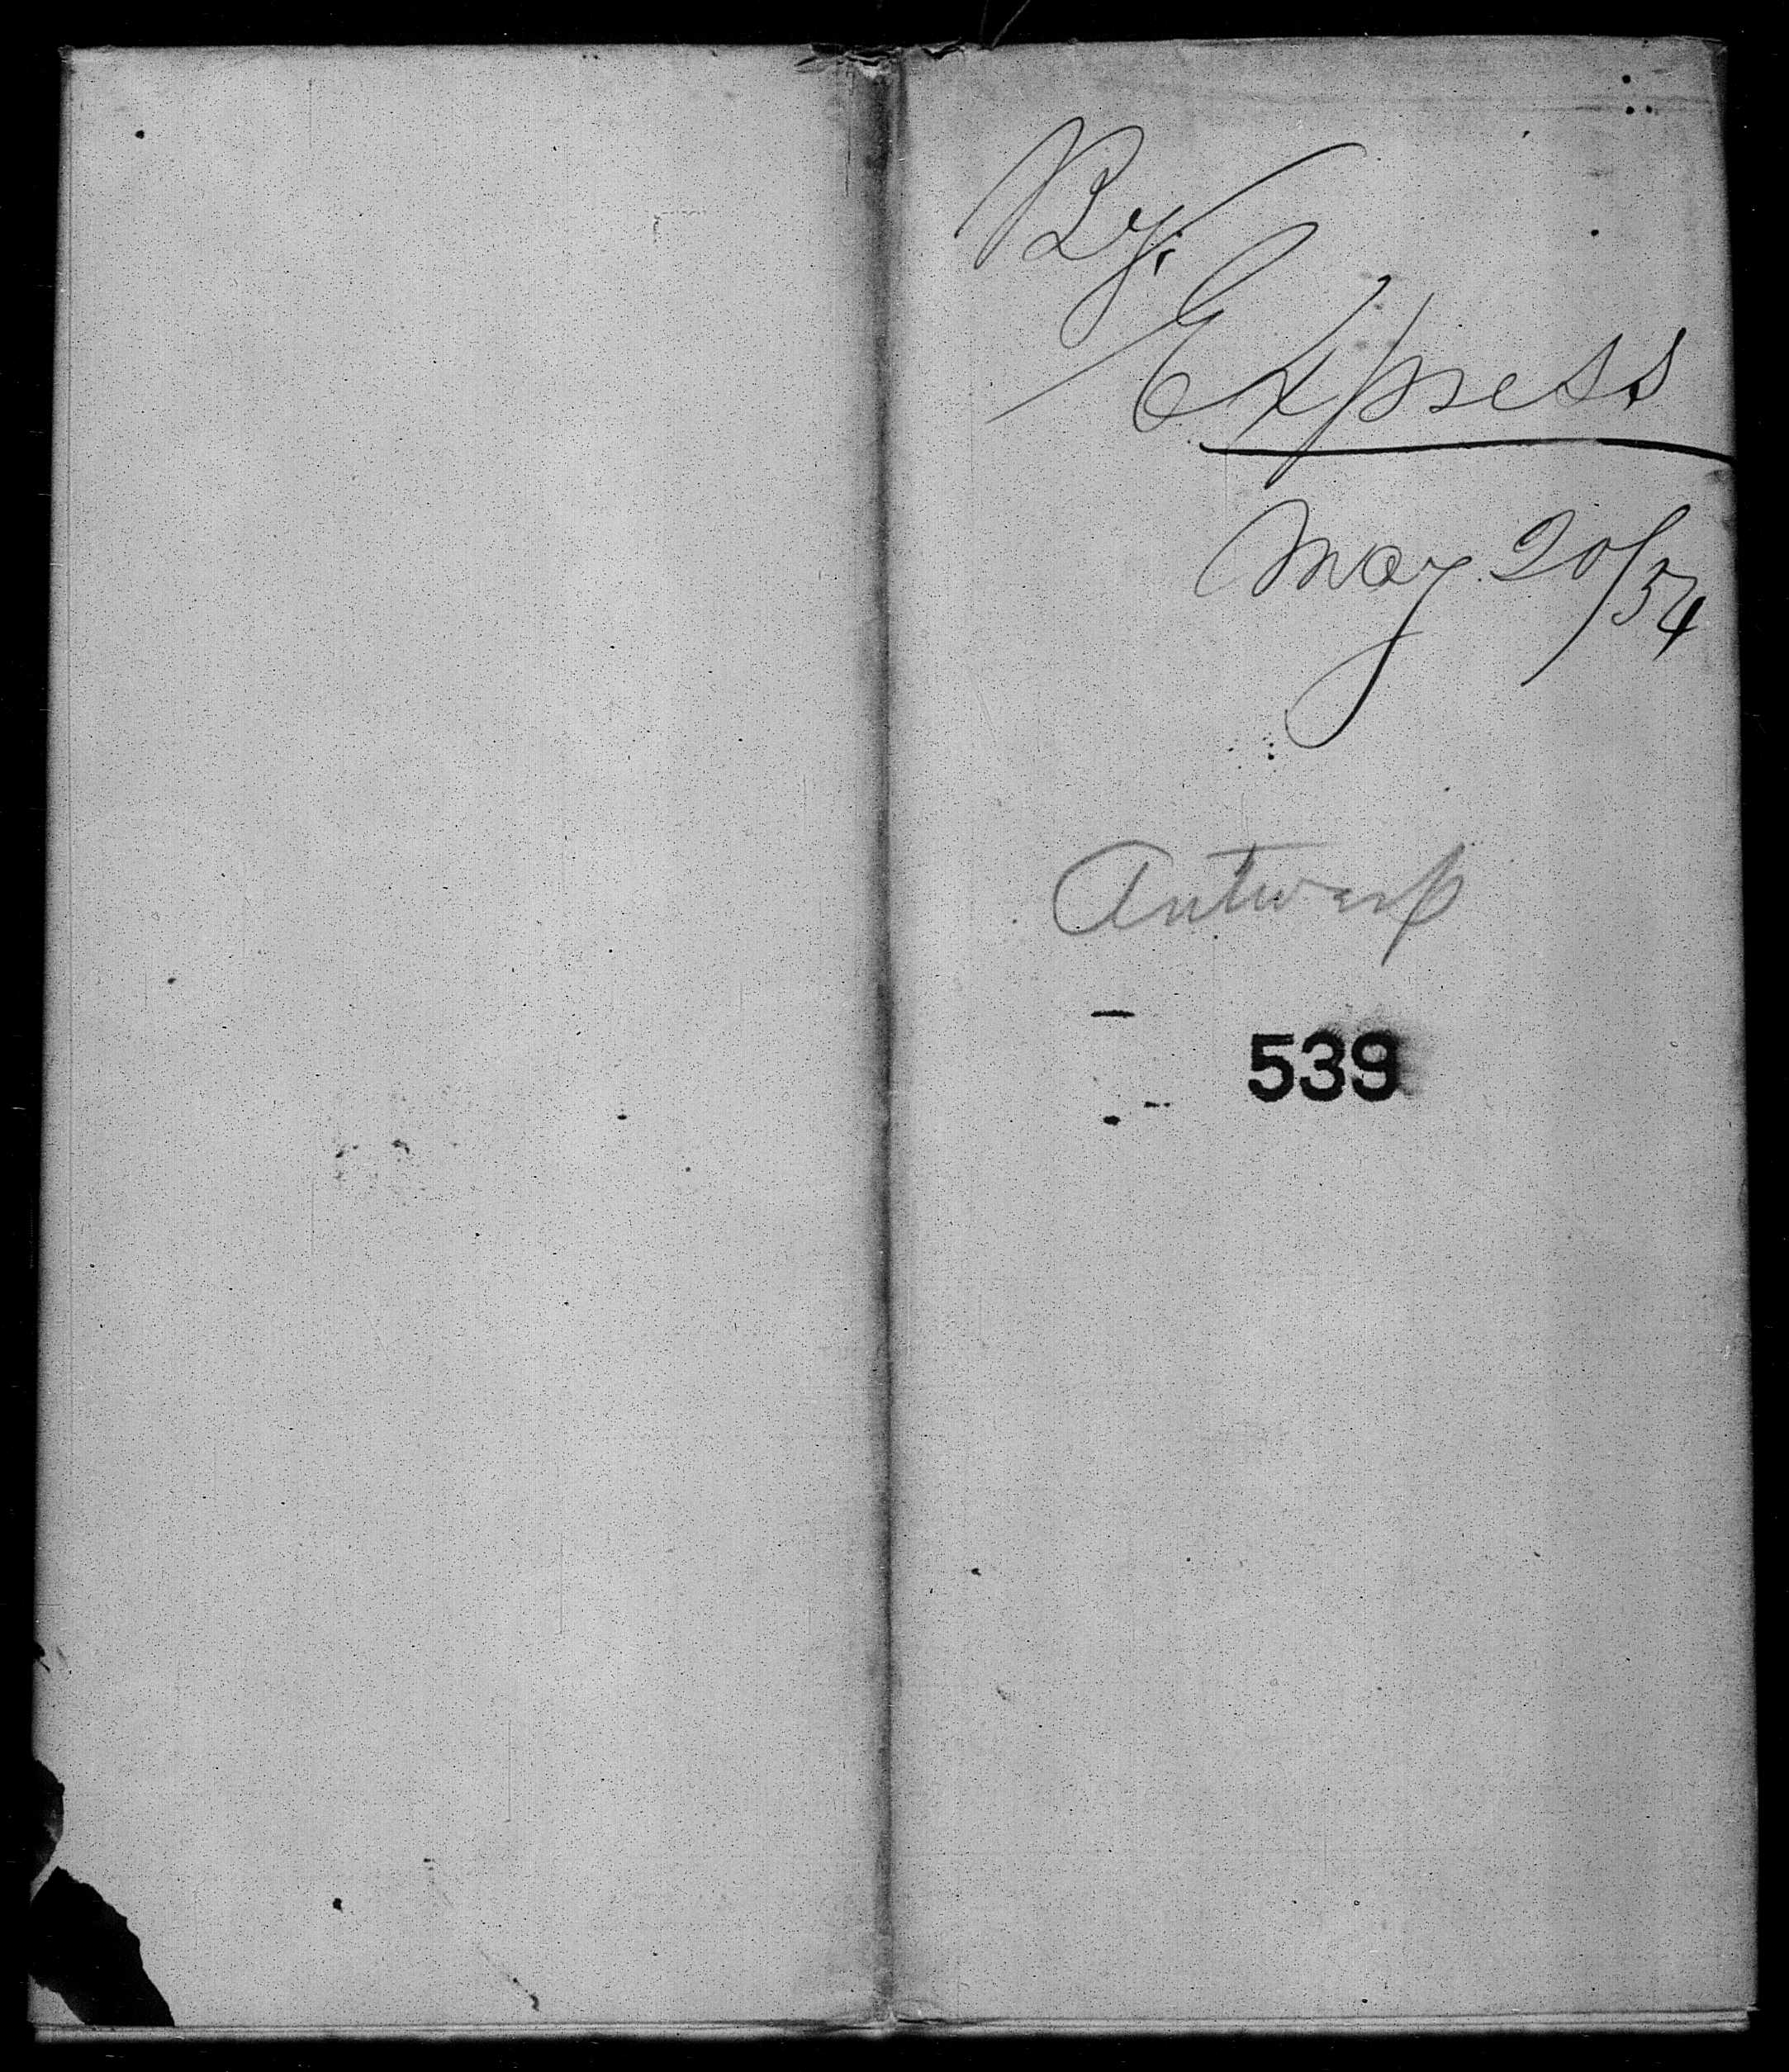 By
Express
May 20/54
Antwerp
539